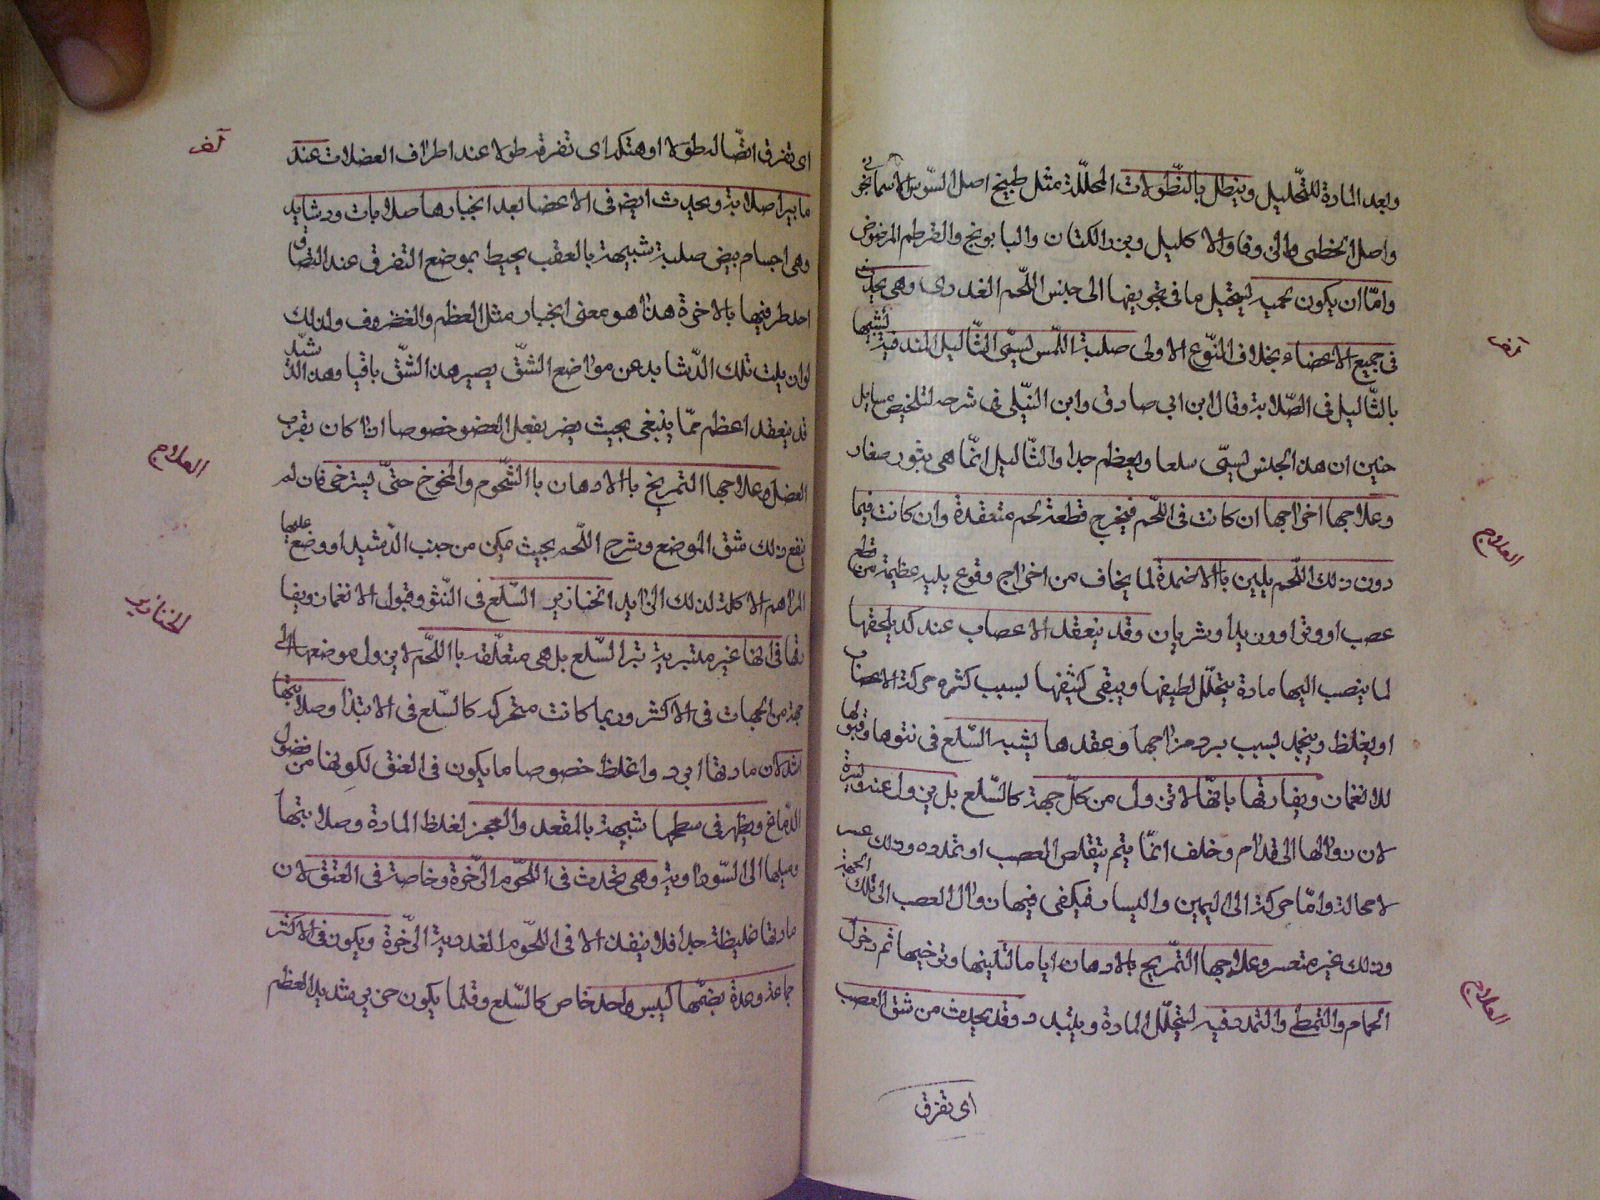 وبعد المادة للتحليل وينطل بالنطولات المحللة مثل طبيخ اصل السوس الاسمانجوني
واصل الخطمى والزوفا والاكليل وبزر الكتان والبابونج والقرطم المرضوض
وامّا ان يكون لحميه ليتحيل ما فى تجويفها الى جنس اللّحم الغددى وهى يحدث
فى جميع الاعضاء بخلاف النّوع الاولى صلبة اللّمس ليسمّى الثّاليل المندفنة لشبهها
بالثّاليل فى الصّلابة وقال ابن ابى صادق وابن النّيلى فى شرحه لتلخيص مسايل
حنين ان هذا الجنس ليسمّى سلعا ويعظم جدا والثّاليل انّما هى بثور صغار
وعلاجها اخراجها ان كانت فى اللّحم فيخرج قطعة لحم متعقدة وان كانت فيما
دون ذلك اللّحم يلين بالاضمدة لما يخاف من اخراج وقوع بلية عظيمة من قطع
عصب او وتر او وريد او شريان وقد ينعقد الاعصاب عند كد يلحقها
لما ينصب اليها مادة يتحلّل لطيفها ويبقى كثيفها لسبب كثره حركة الاعضاب
او يغلظ وينجمد لسبب برد مزاجها وعقدها يشبه السّلع فى نتوها وقبولها
للانغماز ويفارقها بانّها لاتزول من كلّ جهة كالسّلع بل يزول عنه ويسرة
لان زوالها الى قدام وخلف انّما يتم بتقلص العصب او تمدده وذلك عسر
لا محالة وامّا حركة الى اليمين واليسار فيكفى فيها زوال العصب الى تلك الجهة
وذلك غير متعسر وعلاجها التّمريخ بالادهان اياما لتلينها وترخيها ثم دخول
الحمام والتمطى والتمدد فيه ليتحلّل المادة ويتبدد وقد يحدث من شق العصب
اى تفرق
آنف
العلاج
العلاج
اى تفرق اتصاله طولا او هتكه اى تفرقه طولا عند اطراف العضلات عند
ما بيرا صلابة ويحدث ايض فى الاعضا بعد انجبارها صلابات ودشايد
وهى اجسام بيض صلبة شبيهة بالعقب يحيط بموضع التفرق عند التصاق
احد طرفيها بالاخرة هذا هو معنى انجبار مثل العظم والغضروف ولذلك
لو ازيلت تلك الدّشابد عن مواضع الشّق يصير هذا الشّق باقيا وهذا الدّشبد
قد ينعقد اعظم ممّا ينبغى بحيث يضر بفعل العضو خصوصا اذا كان بقرب
العضلة وعلاجها التمريخ بالادهان باالشّحوم والمخوخ حتىّ ليسترخى فان لم
ينفع ذلك شق الموضع وشرح اللّحم بحيث يمكن من جنب الدّشبد او وضع عليها
المراهم الاكلة لذلك الزايد الخنازير السّلع فى النّتو وقبول الانغماز ويفا
رقها فى انها غير متبرية تبرا السّلع بل هى متعلّقه باللّحم لا يزول موضعها الى
جهة من الجهات فى الاكثر وربما كانت متحركه كالسّلع فى الابتدا وصلابتها
اشد لان مادتها ابرد واغلظ خصوصا ما يكون فى العنق لكونها من فضول
الدّماغ ويظهر فى سطحها شبيهة بالمقعد والعجز لغلظ المادة وصلابتها
وميلها الى السّوداوية وهى تحدث فى اللّحوم الرّخوة وخاصة فى العنق لان
مادتها غليظة جدا فلا ينفذ الا فى اللّحوم الغددية الرّخوة ويكون فى الاكثر
جماعة وعدة يضمّها كيس واحد خاص كالسّلع وقلما يكون خنزير شديد العظم
آنف
العلاج
الخنازير